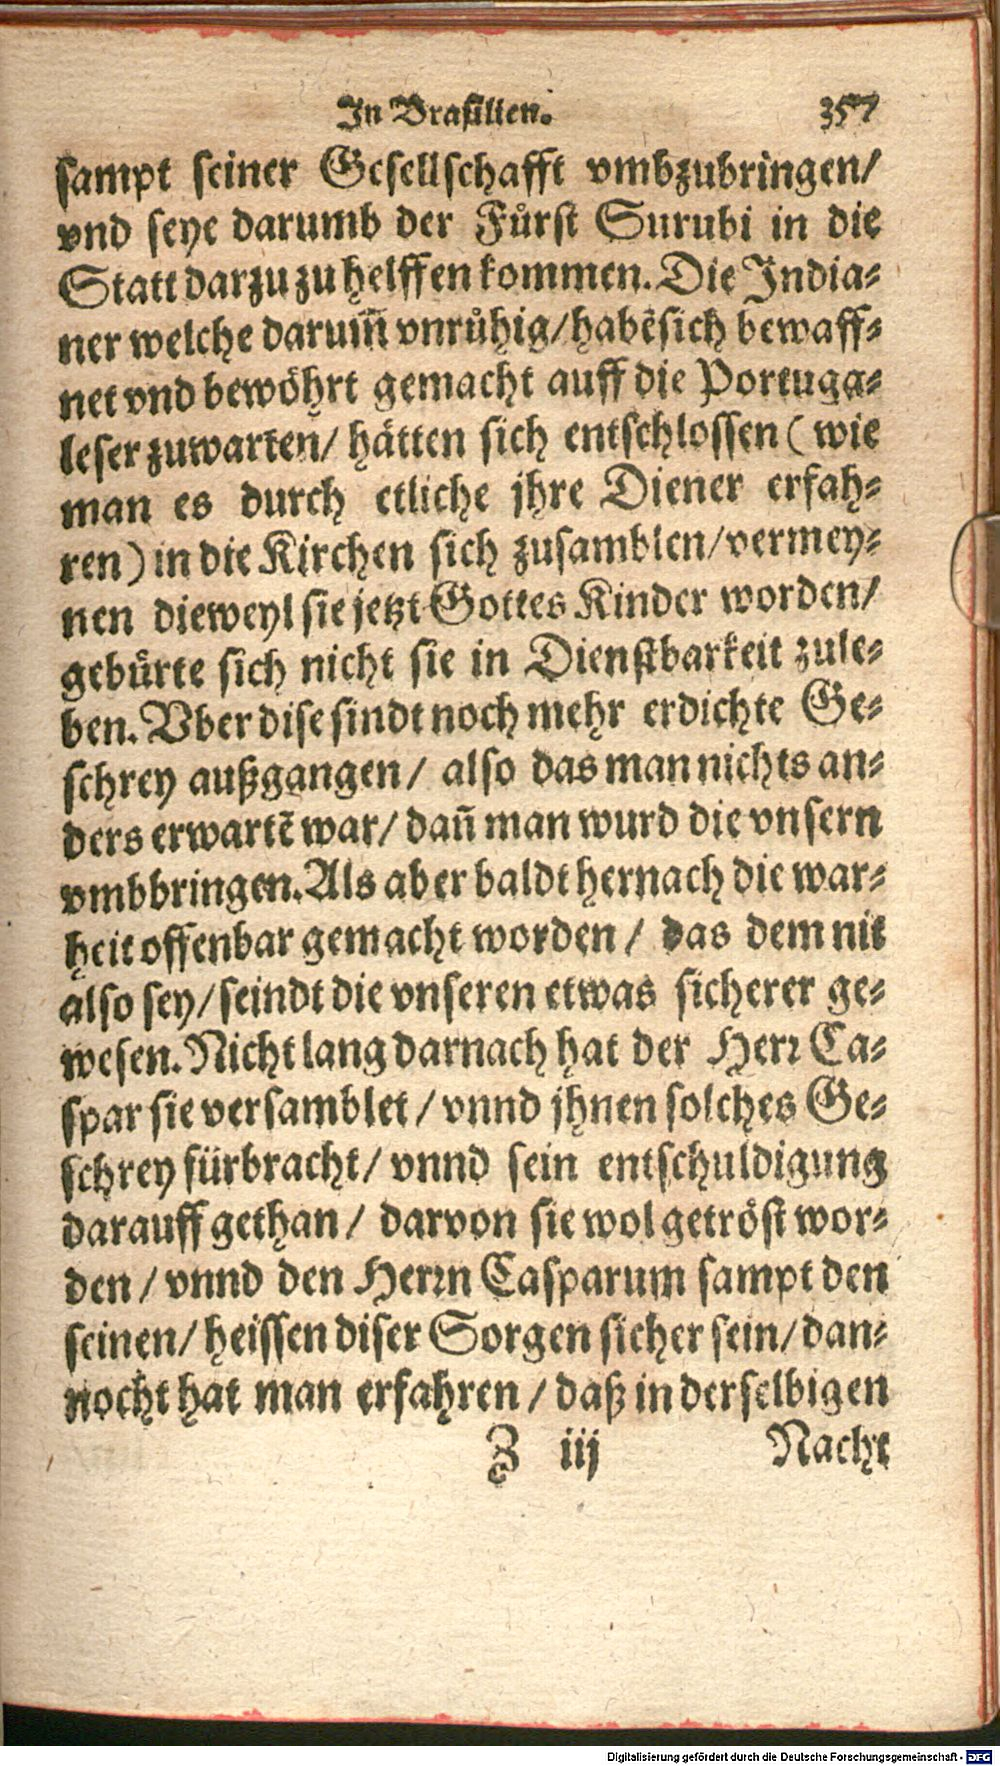 In Brasilien. 357
sampt seiner Gesellschafft vmbzubringen/
vnd seye darumb der Fůrst Surubi in die
Statt darzu zu helffen kommen. Die India-
ner welche darum̃ vnrůhig/ habẽ sich bewaff-
net vnd bewöhrt gemacht auff die Portuga-
leser zuwarten/ hätten sich entschlossen ( wie
man es durch etliche jhre Diener erfah-
ren ) in die Kirchen sich zusamblen/ vermey-
nen dieweyl sie jetzt Gottes Kinder worden/
gebürte sich nicht sie in Dienstbarkeit zule-
ben. Vber dise sindt noch mehr erdichte Ge-
schrey außgangen/ also das man nichts an-
ders erwartẽ war/ dañ man wurd die vnsern
vmbbringen. Als aber baldt hernach die war-
heit offenbar gemacht worden / das dem nit
also sey/ seindt die vnseren etwas sicherer ge-
wesen. Nicht lang darnach hat der Herr Ca-
spar sie versamblet / vnnd jhnen solches Ge-
schrey fürbracht/ vnnd sein entschuldigung
darauff gethan/ darvon sie wol getröst wor-
den / vnnd den Herrn Casparum sampt den
seinen/ heissen diser Sorgen sicher sein/ dan-
nocht hat man erfahren / daß in derselbigen
Z iij Nacht
Digitalisierung gefördert durch die Deutsche Forschungsgemeinschaft - DFG